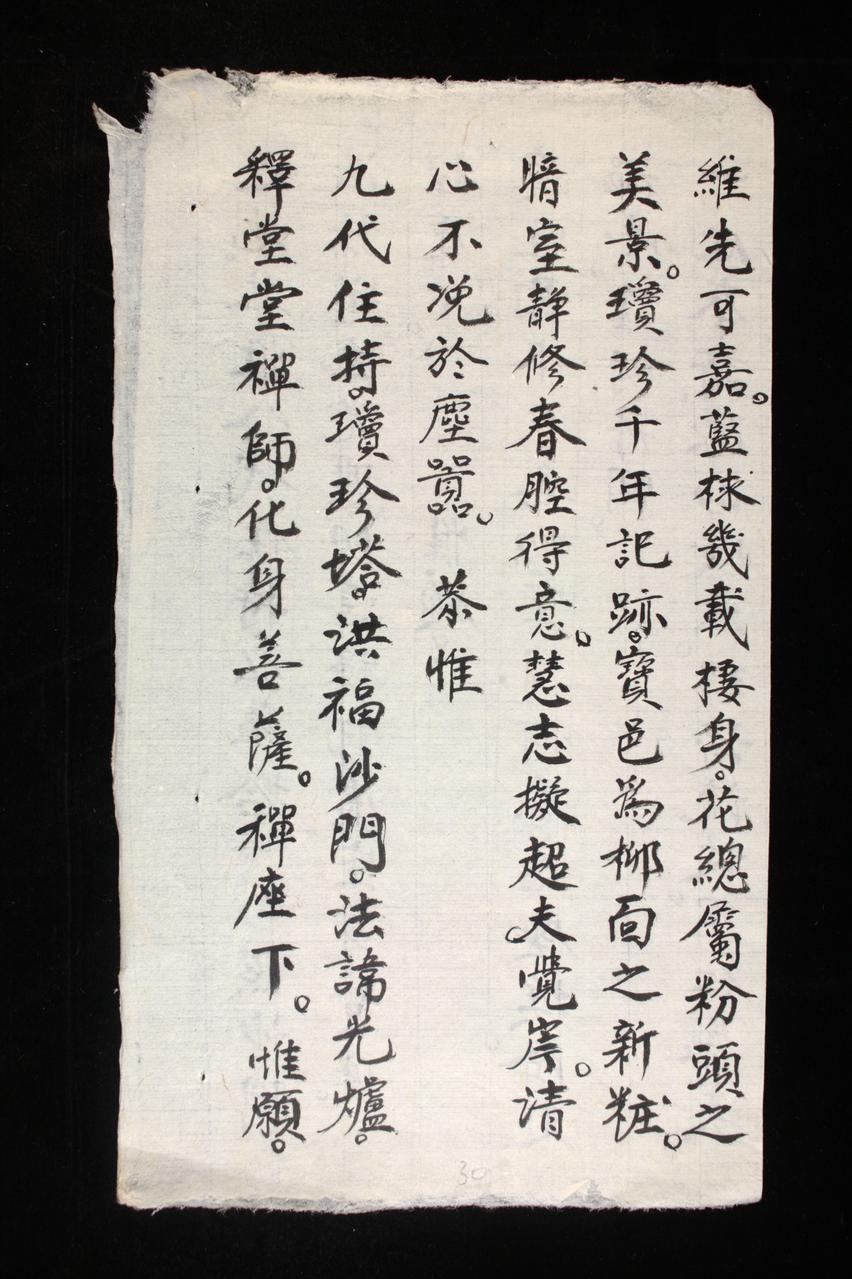 維先可嘉。藍梂幾載棲身。花總屬粉頭之
美景。瓊珍千年記跡。寶邑爲柳面之新粧。
暗室静修春腔得意。慧志擬超夫覺岸。清
心不涗於塵囂。 恭惟
九代住持。瓊珍塔。洪福沙門。法諱光爐。
釋堂堂禪師。化身菩薩。禪座下。惟願。
30